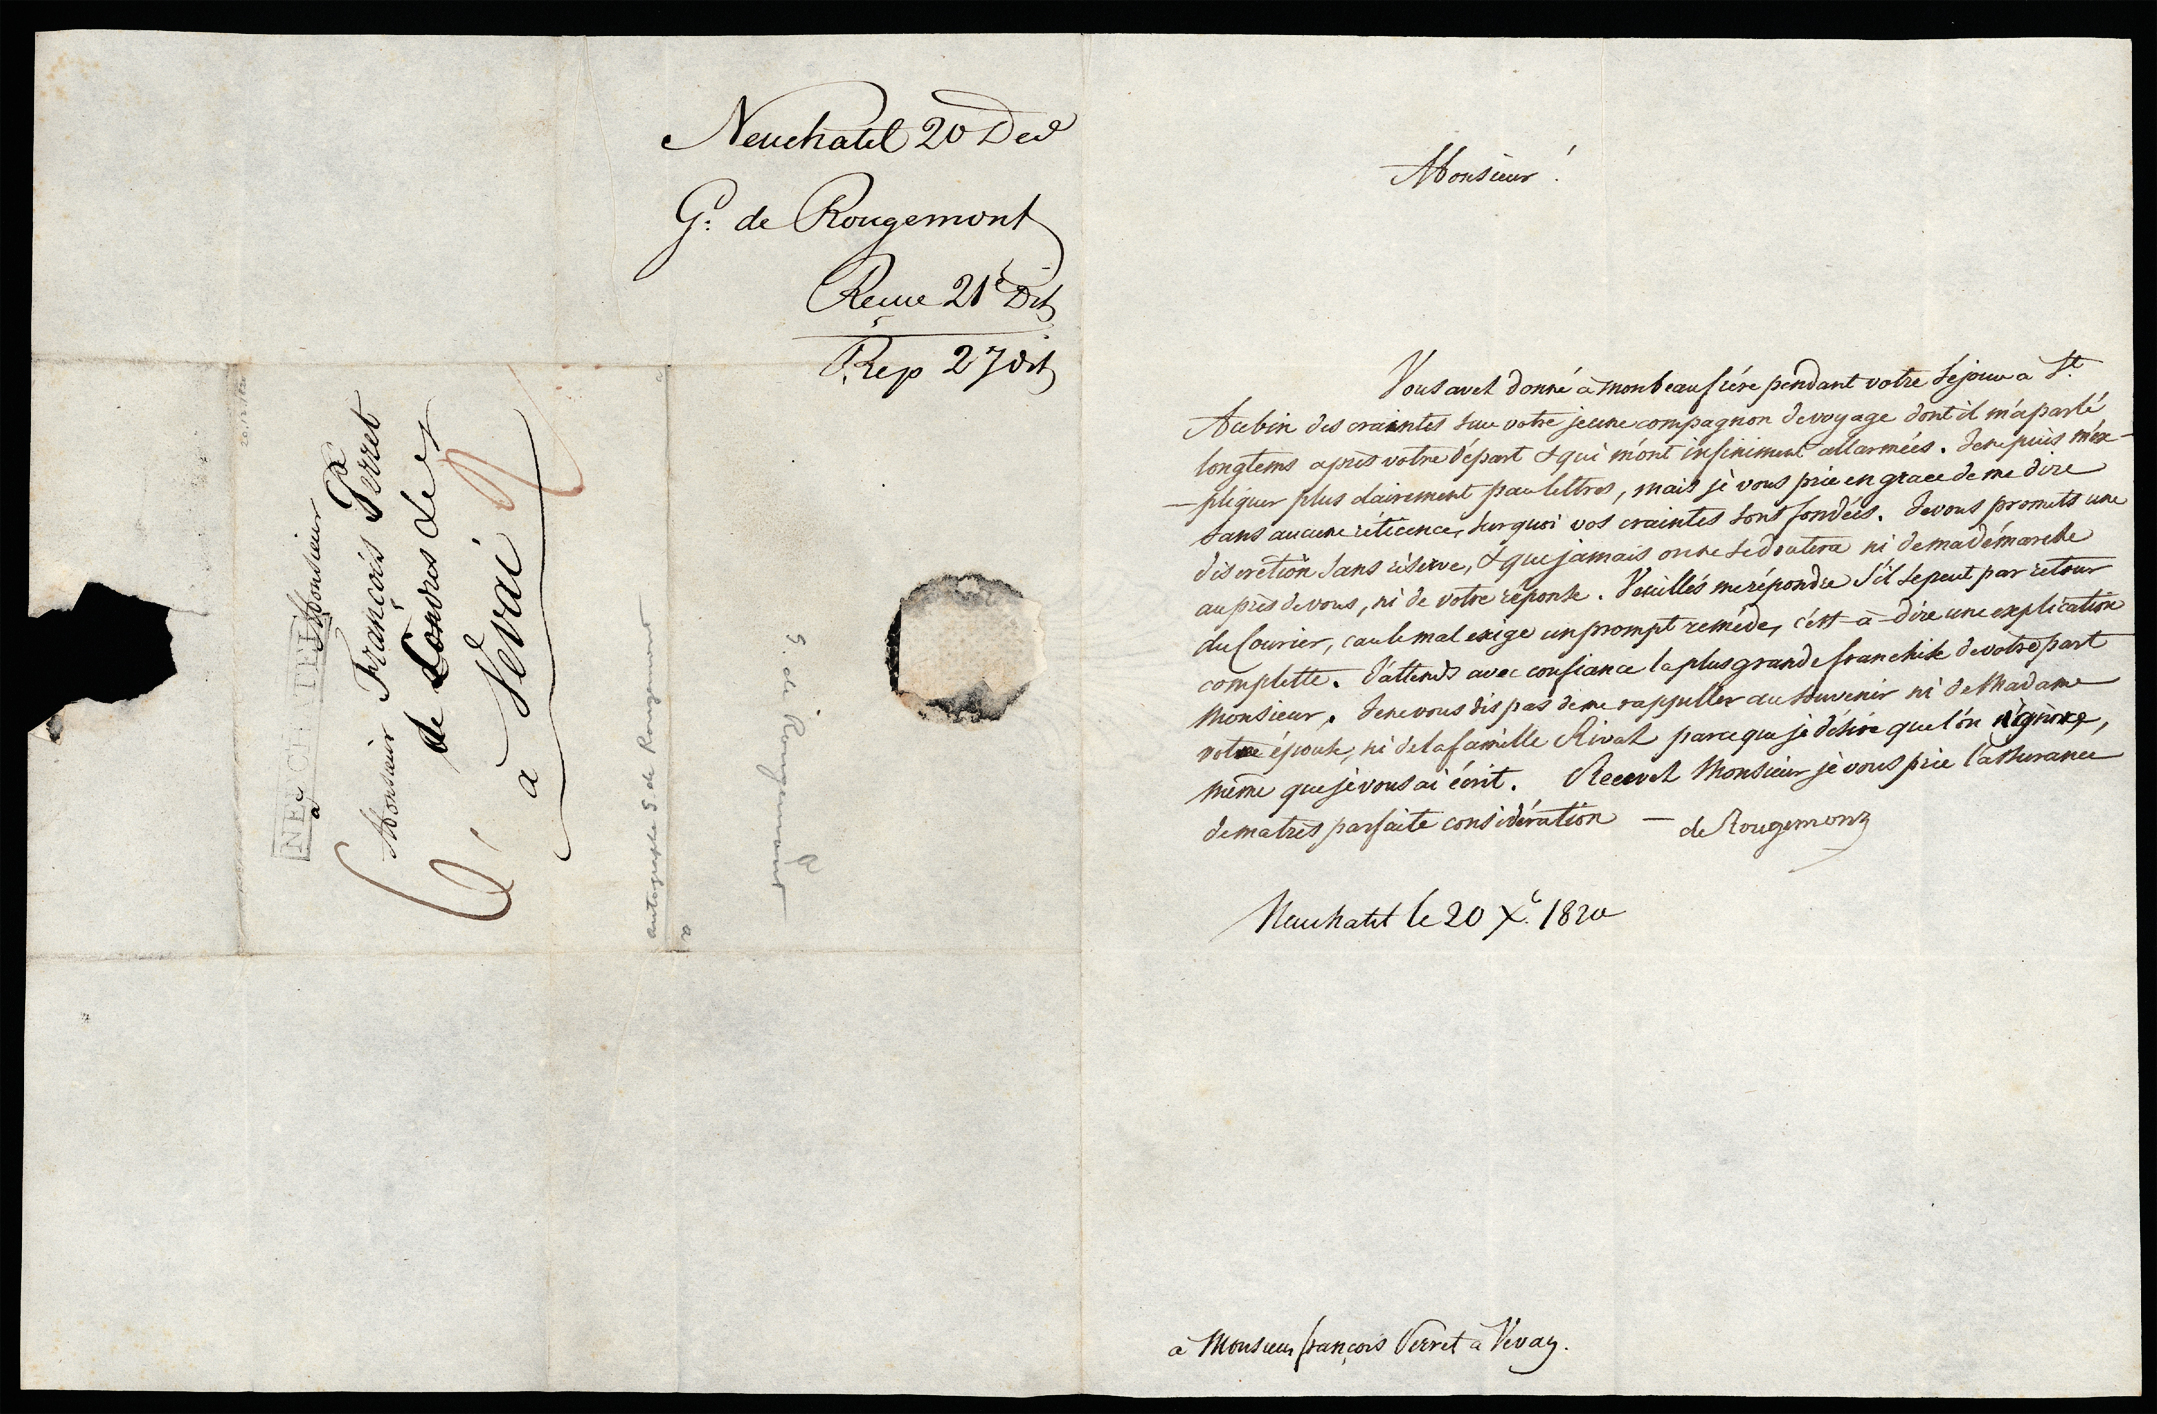 Neuchatel 20 Dec
G. de Rougemont
Recue 21e Dit
Rep 27 dit
NEUCHATEL
à Monsieur
Monsieur François Perret
de Londres de
à Vevai
autographe G de Rougemont
G. de Rougemont
Monsieur !
Vous avez donné à mon beaufrére pendant votre séjour à St.
Aubin des craintes sur votre jeune compagnon de voyage dont il m'a parlé
longtems après votre départ & qui m'ont infiniment allarmées. Je ne puis m'ex-
-pliquer plus clairement par lettres, mais je vous prie en grace de me dire
sans aucune réticence, sur quoi vos craintes sont fondées. Je vous promets une
discrétion sans réserve, & que jamais on ne se doutera ni de ma démarche
auprès de vous, ni de votre réponse. Veuillés me répondre s'il se peut par retour
du Courier, car le mal exige un prompt reméde, c'est-à-dire une explication
complette. J'attends avec confiance la plus grande franchise de votre part
Monsieur. Je ne vous dis pas de me rappeller au souvenir ni de Madame
votre épouse, ni de la famille Rivat parce que je désire que l'on ignore,
même que je vous ai écrit. Recevez Monsieur je vous prie l'assurance
de ma très parfaite considération — de Rougemont
Neuchatel le 20 Xe. 1820
à Monsieur françois Perret à Vevay.